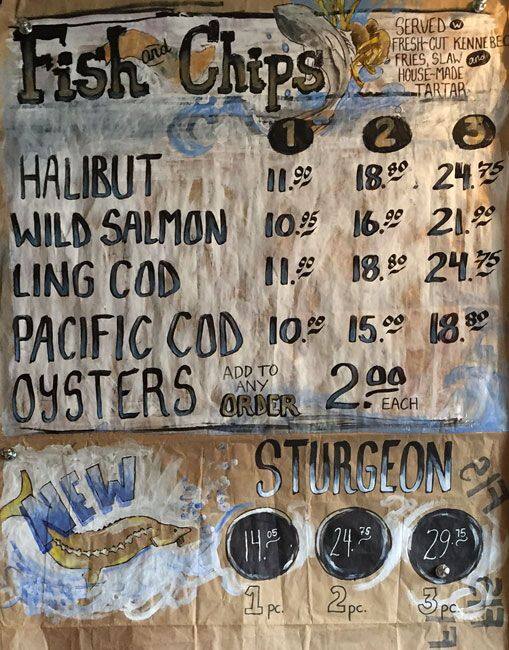 Fish and Chips
SERVED W
FRESH-CUT KENNEBEC
FRIES, SLAW and
HOUSE-MADE
TARTAR
1 2 3
HALIBUT 11.90 18.80 24.75
WILD SALMON 10.95 16.90 21.90
LING COD 11.90 18.80 24.75
PACIFIC COD 10.00 15.00 18.80
OYSTERS ADD TO ANY ORDER 2.00 EACH
NEW
STURGEON
14.05 24.75 29.75
1 pc. 2 pc. 3 pc.